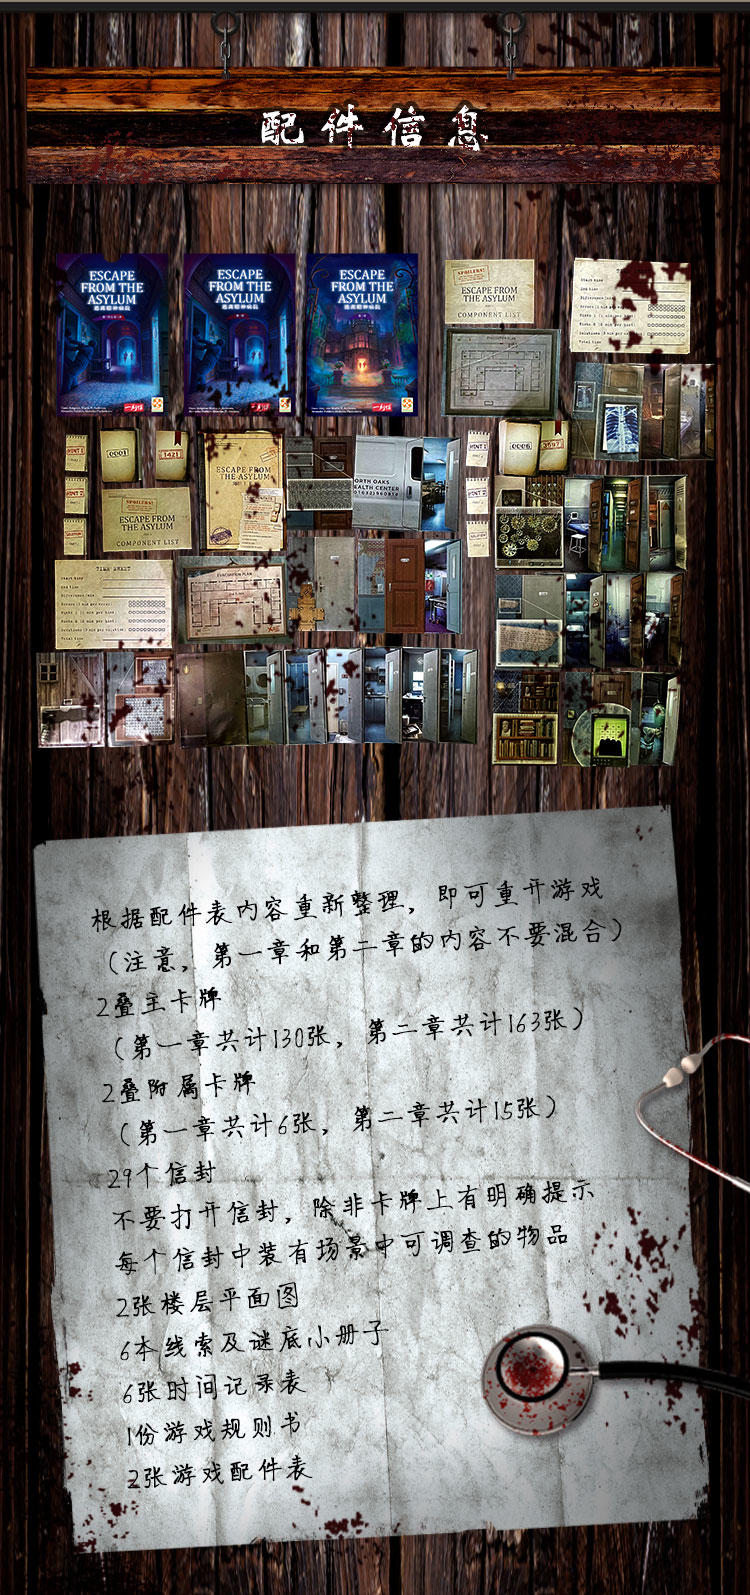 配件信息
ESCAPE
FROM THE
ASYLUM
ESCAPE
FROM THE
ASYLUM
ESCAPE
FROM THE
ASYLUM
SPOILERS!
ESCAPE FROM
THE ASYLUM
COMPONENT LIST
HINT 1
0001
1421
ESCAPE FROM
THE ASYLUM
NORTH OAKS
HEALTH CENTER
HINT 1
0006
HINT 2
SPOILERS!
ESCAPE FROM
THE ASYLUM
COMPONENT LIST
HINT 2
TIME SHEET
EVACUATION PLAN
根据配件表内容重新整理，即可重开游戏
（注意，第一章和第二章的内容不要混合）
2叠主卡牌
（第一章共计130张，第二章共计163张）
2叠附属卡牌
（第一章共计6张，第二章共计15张）
29个信封
不要打开信封，除非卡牌上有明确提示
每个信封中装有场景中可调查的物品
2张楼层平面图
6本线索及谜底小册子
6张时间记录表
1份游戏规则书
2张游戏配件表